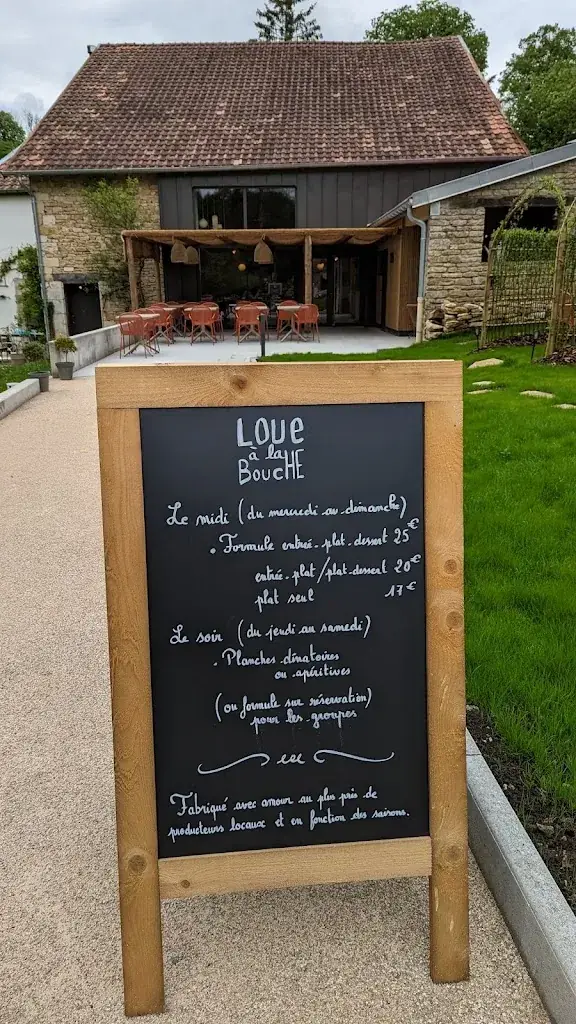 LOUE
à la
BOUCHE
Le midi (du mercredi au dimanche)
• Formule entrée-plat-dessert 25€
entrée-plat/plat-dessert 20€
plat seul 17€
Le soir (du jeudi au samedi)
• Planches dînatoires
ou apéritives
(ou formule sur réservation)
pour les groupes
Fabriqué avec amour au plus près de
producteurs locaux et en fonction des saisons.